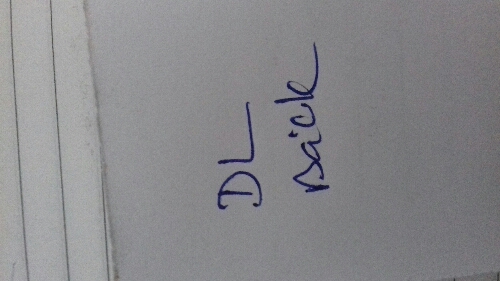 DL
Back